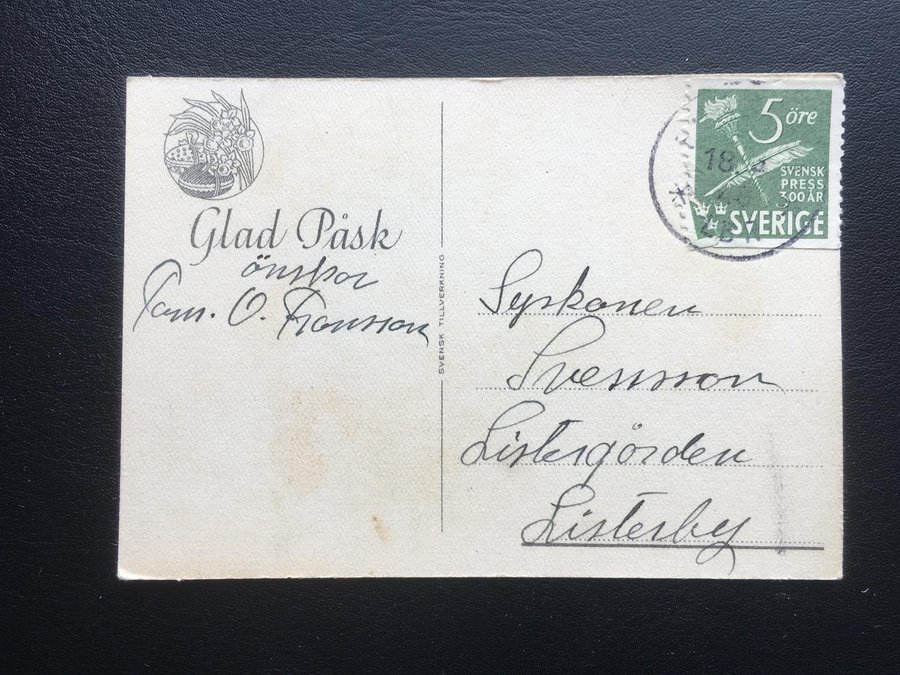 Glad Påsk
önskar
Fam. O. Fransson
SVENSK TILLVERKNING
5 öre
SVENSK
PRESS
300 ÅR
SVERIGE
18
Syskonen
Svensson
Listergården
Listerby